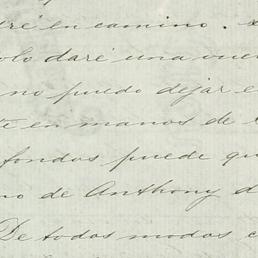 dré en camino.
olo daré una vue
no puedo dejar e
te en manos de
fondos puede qu
no de Anthony d
De todos modos c